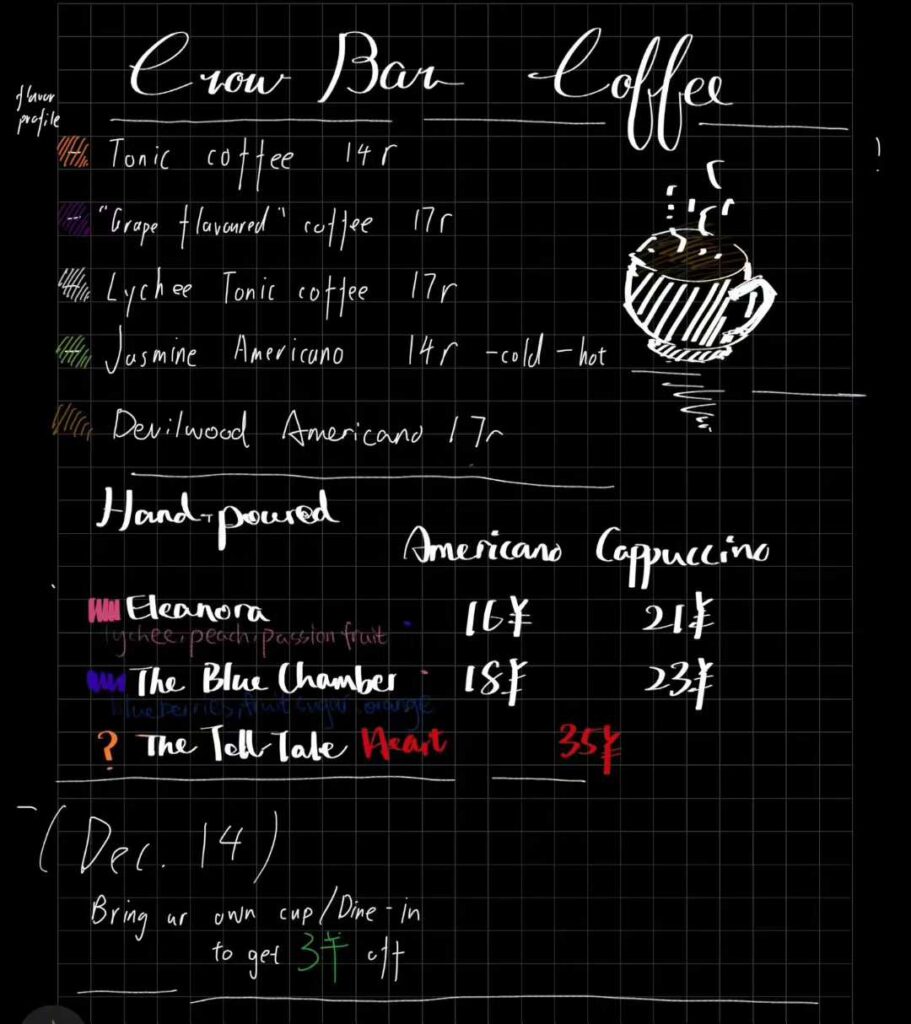 Crow Bar Coffee
flavor
profile
Tonic coffee 14r
"Grape flavoured" coffee 17r
Lychee Tonic coffee 17r
Jasmine Americano 14r -cold -hot
Devilwood Americano 17r
Hand-poured
Americano Cappuccino
Eleanora 16¥ 21¥
lychee, peach, passion fruit
The Blue Chamber 18¥ 23¥
blueberries, fruit sugar, orange
? The Tell-Tale Heart 35¥
(Dec. 14)
Bring ur own cup/Dine-in
to get 3¥ off